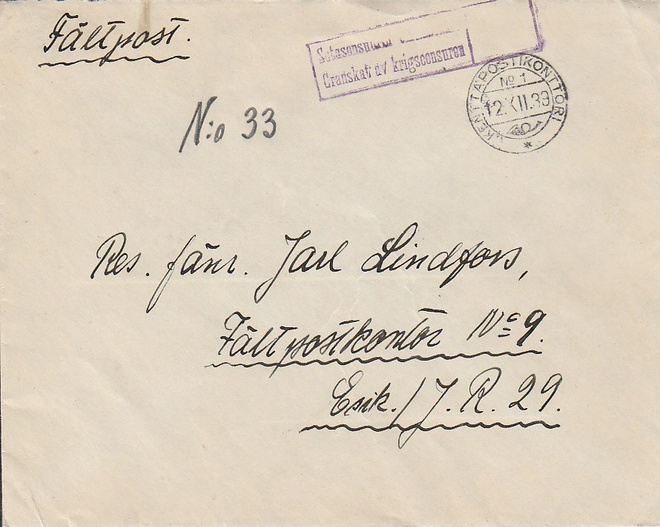 Fältpost.
Granskat av krigscensuren
KENTTÄPOSTIKONTTORI
No 1
12.XII.39
N:o 33
Res. fänr. Jarl Lindfors,
Fältpostkontor No 9.
Esik./J.R. 29.